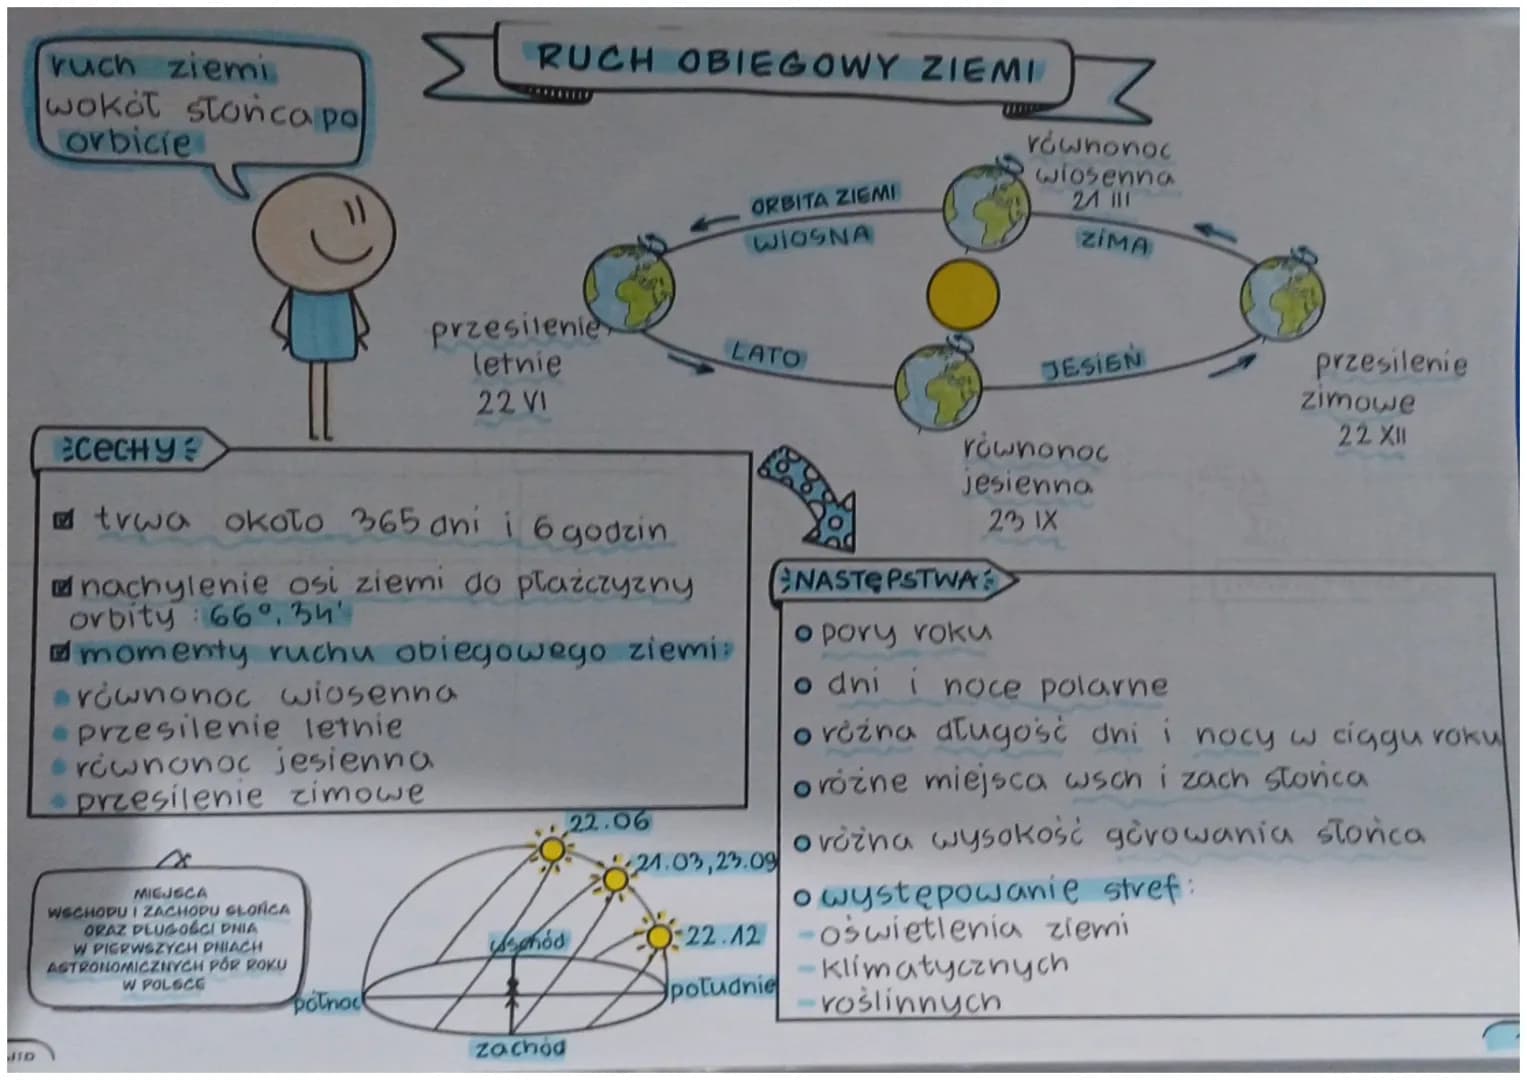 RUCH OBIEGOWY ZIEMI
ruch ziemi
wokół słońca po
orbicie
równonoc
wiosenna
21 III
ORBITA ZIEMI
WIOSNA
ZIMA
przesilenie
letnie
22 VI
LATO
JESIEŃ
przesilenie
zimowe
22 XII
równonoc
jesienna
23 IX
CECHY
trwa około 365 dni i 6 godzin
nachylenie osi ziemi do płaźczyzny
orbity : 66°, 34'
momenty ruchu obiegowego ziemi:
równonoc wiosenna
przesilenie letnie
równonoc jesienna
przesilenie zimowe
NASTĘPSTWA
pory roku
dni i noce polarne
różna długość dni i nocy w ciągu roku
różne miejsca wsch i zach słońca
różna wysokość górowania słońca
występowanie stref:
-oświetlenia ziemi
-klimatycznych
-roślinnych
MIEJSCA
WSCHODU I ZACHODU SŁOŃCA
ORAZ DŁUGOŚCI DNIA
W PIERWSZYCH DNIACH
ASTRONOMICZNYCH PÓR ROKU
W POLSCE
22.06
21.03, 23.09
22.12
wschód
północ
południe
zachód